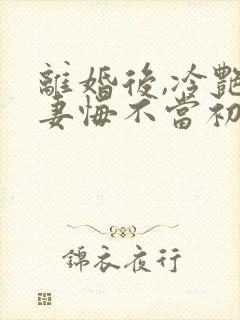 離婚後,冷艷
妻悔不當初
錦衣夜行